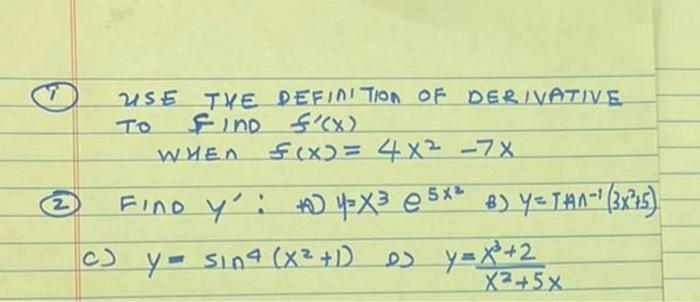 ① USE THE DEFINITION OF DERIVATIVE
TO FIND f'(x)
WHEN f(x) = 4x² -7x
② FIND y' : A) y=x³ e^5x² B) y=TAN⁻¹(3x²+5)
C) y = sin⁴(x²+1) D) y = x³+2
x²+5x